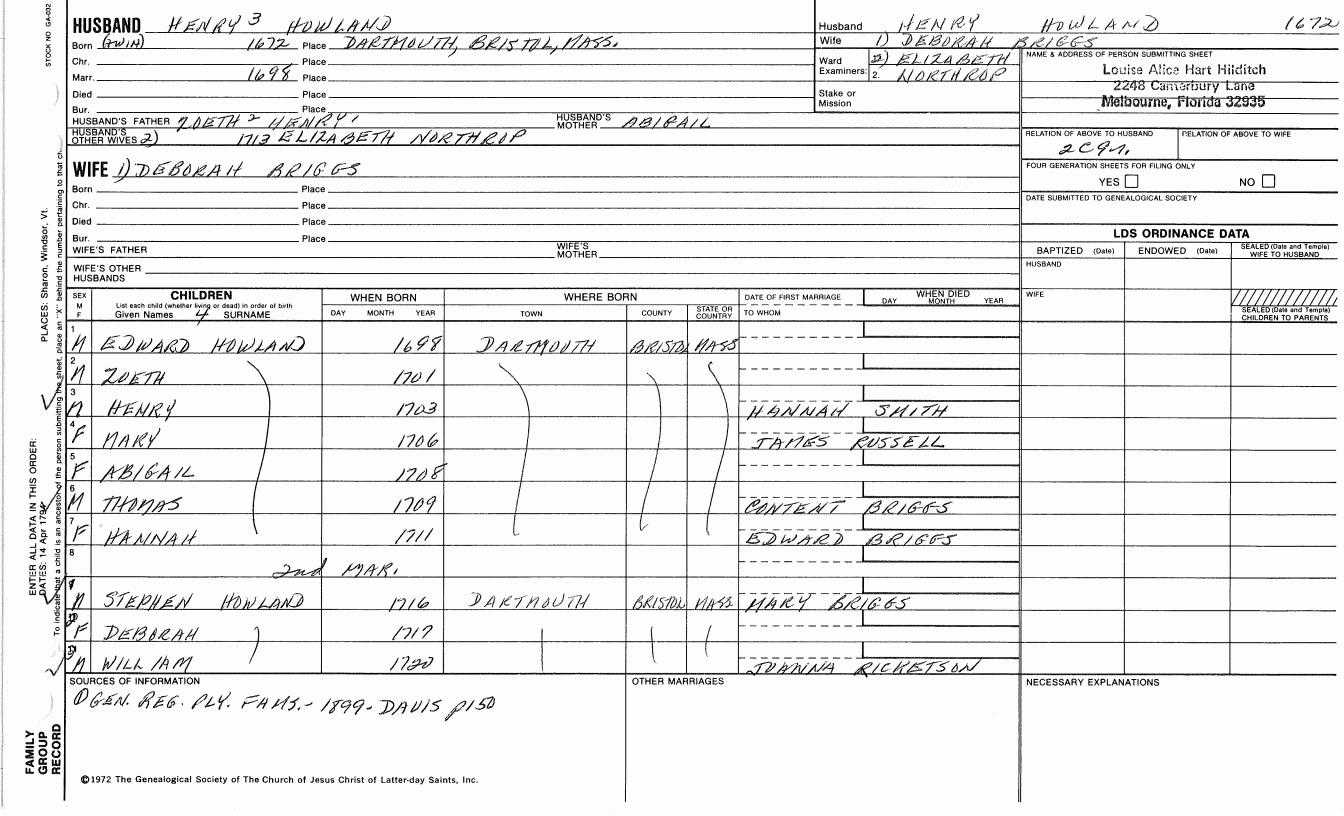 STOCK NO GA-032
HUSBAND HENRY 3 HOWLAND
Born (TWIN) 1672 Place DARTMOUTH, BRISTOL, MASS.
Chr. Place
Marr. 1698 Place
Died Place
Bur. Place
HUSBAND'S FATHER ZOETH 2 HENRY 1 HUSBAND'S MOTHER ABIGAIL
HUSBAND'S OTHER WIVES 2) 1713 ELIZABETH NORTHROP
Husband HENRY HOWLAND 1672
Wife 1) DEBORAH BRIGGS
Ward 2) ELIZABETH
Examiners: 2. NORTHROP
Stake or
Mission
NAME & ADDRESS OF PERSON SUBMITTING SHEET
Louise Alice Hart Hilditch
2248 Canterbury Lane
Melbourne, Florida 32935
RELATION OF ABOVE TO HUSBAND RELATION OF ABOVE TO WIFE
FOUR GENERATION SHEETS FOR FILING ONLY
YES NO
DATE SUBMITTED TO GENEALOGICAL SOCIETY
WIFE 1) DEBORAH BRIGGS
Born Place
Chr. Place
Died Place
Bur. Place
WIFE'S FATHER WIFE'S MOTHER
WIFE'S OTHER
HUSBANDS
LDS ORDINANCE DATA
BAPTIZED (Date) ENDOWED (Date) SEALED (Date and Temple) WIFE TO HUSBAND
HUSBAND
WIFE
SEALED (Date and Temple)
CHILDREN TO PARENTS
SEX M F CHILDREN WHEN BORN WHERE BORN DATE OF FIRST MARRIAGE WHEN DIED
List each child (whether living or dead) in order of birth DAY MONTH YEAR
Given Names 4 SURNAME DAY MONTH YEAR TOWN COUNTY STATE OR COUNTRY TO WHOM
1 M EDWARD HOWLAND 1698 DARTMOUTH BRISTOL MASS
2 M ZOETH 1701
3 M HENRY 1703 HANNAH SMITH
4 F MARY 1706 JAMES RUSSELL
5 F ABIGAIL 1708
6 M THOMAS 1709 CONTENT BRIGGS
7 F HANNAH 1711 EDWARD BRIGGS
8 2nd MAR.
M STEPHEN HOWLAND 1716 DARTMOUTH BRISTOL MASS MARY BRIGGS
F DEBORAH 1717
M WILLIAM 1720 JOANNA RICKETSON
SOURCES OF INFORMATION OTHER MARRIAGES NECESSARY EXPLANATIONS
① GEN. REG. PLY. FAMS. - 1899 - DAVIS p150
©1972 The Genealogical Society of The Church of Jesus Christ of Latter-day Saints, Inc.
FAMILY
GROUP
RECORD
ENTER ALL DATA IN THIS ORDER:
PLACES: Sharon, Windsor, Vt.
DATES: 14 Apr 1794
To indicate that a child is an ancestor of the person submitting the sheet, place an "X" behind the number pertaining to that ch